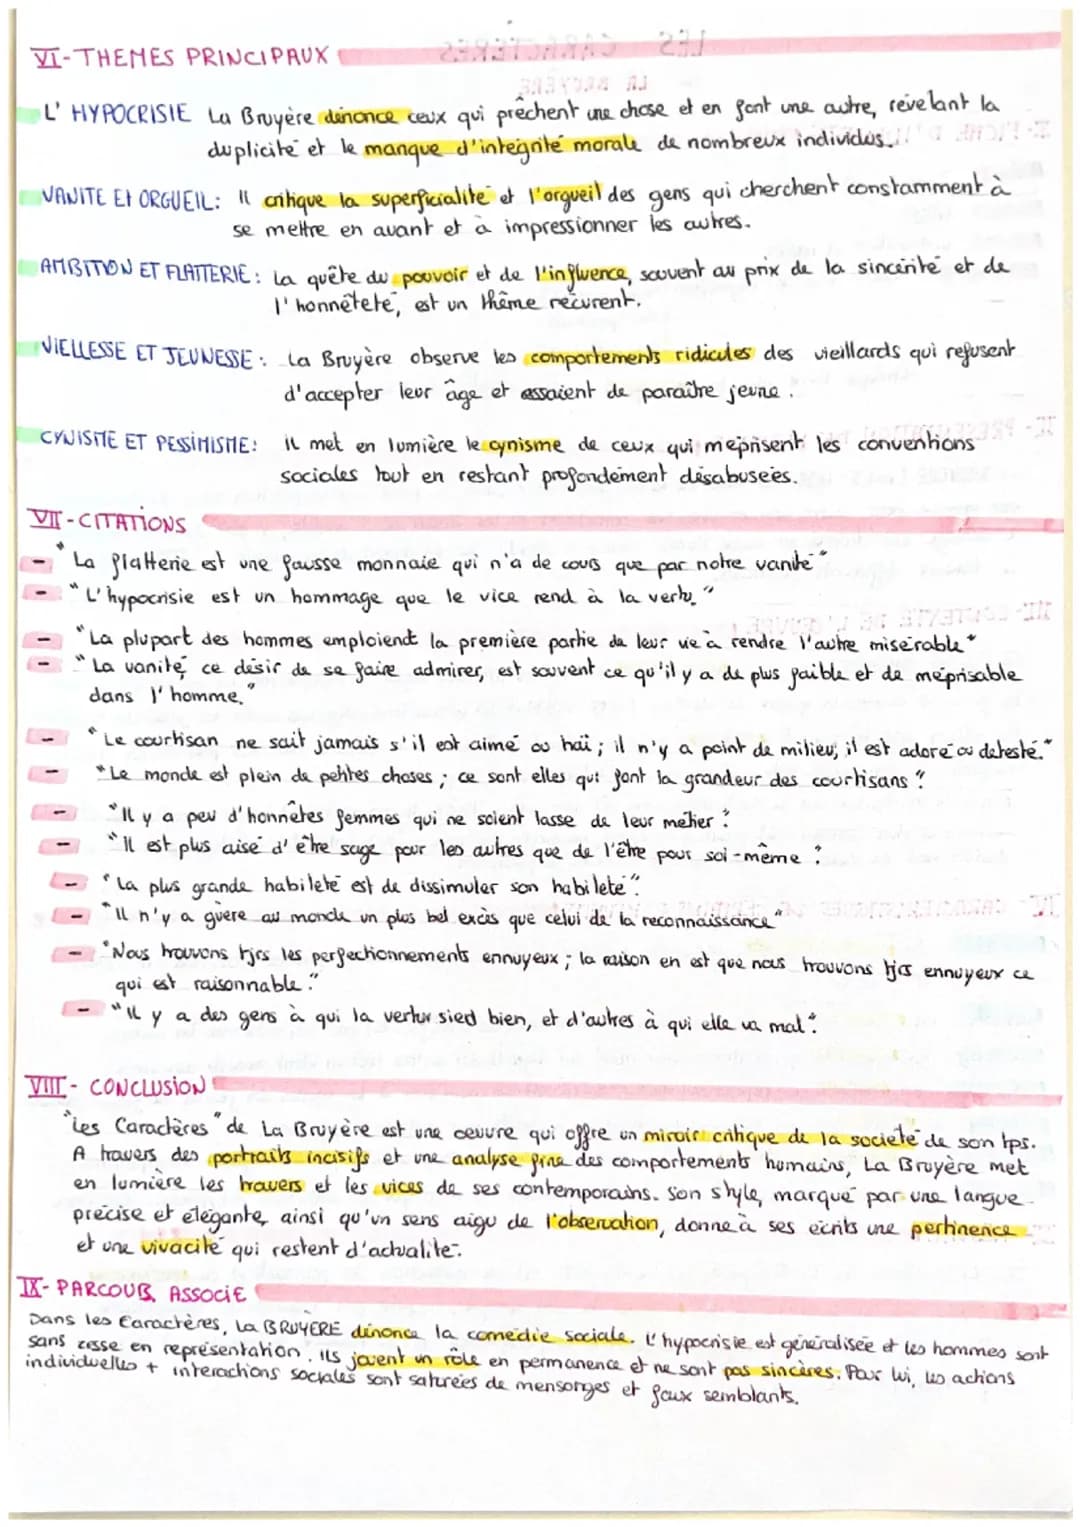 VI- THEMES PRINCIPAUX
L' HYPOCRISIE La Bruyère dénonce ceux qui prêchent une chose et en font une autre, révelant la
duplicité et le manque d'intégrité morale de nombreux individus.
VANITE Et ORGUEIL: Il critique la superficialité et l'orgueil des gens qui cherchent constamment à
se mettre en avant et à impressionner les autres.
AMBITION ET FLATTERIE: La quête du pouvoir et de l'influence, souvent au prix de la sincérité et de
l'honnêteté, est un thême récurent.
VIELLESSE ET JEUNESSE: La Bruyère observe les comportements ridicules des vieillards qui refusent
d'accepter leur âge et essaient de paraître jeune.
CYNISME ET PESSIMISME: il met en lumière le cynisme de ceux qui méprisent les conventions
sociales tout en restant profondément désabusées.
VII- CITATIONS
- "La flatterie est une fausse monnaie qui n'a de cours que par notre vanité"
- "L'hypocrisie est un hommage que le vice rend à la vertu."
- "La plupart des hommes emploient la première partie de leur vie à rendre l'autre misérable"
- "La vanité, ce désir de se faire admirer, est souvent ce qu'il y a de plus faible et de méprisable
dans l'homme."
- "Le courtisan ne sait jamais s'il est aimé ou haï; il n'y a point de milieu; il est adoré ou detesté."
- "Le monde est plein de petites choses; ce sont elles qui font la grandeur des courtisans".
- "Il y a peu d'honnêtes femmes qui ne soient lasse de leur métier".
- "Il est plus aisé d'être sage pour les autres que de l'être pour soi-même".
- "La plus grande habileté est de dissimuler son habileté".
- "Il n'y a guère au monde un plus bel excès que celui de la reconnaissance"
- "Nous trouvons tjrs les perfectionnements ennuyeux; la raison en est que nous trouvons tjrs ennuyeux ce
qui est raisonnable."
- "Il y a des gens à qui la vertur sied bien, et d'autres à qui elle va mal".
VIII- CONCLUSION
"Les Caractères" de La Bruyère est une oeuvre qui offre un miroir critique de la société de son tps.
A travers des portraits incisifs et une analyse fine des comportements humains, La Bruyère met
en lumière les travers et les vices de ses contemporains. Son style, marqué par une langue
précise et élégante, ainsi qu'un sens aigu de l'observation, donne à ses écrits une pertinence
et une vivacité qui restent d'actualité.
IX- PARCOUR ASSOCIE
Dans les Caractères, La BRUYERE dénonce la comédie sociale. L'hypocrisie est généralisée et les hommes sont
sans cesse en représentation. Ils jouent un rôle en permanence et ne sont pas sincères. Pour lui, les actions
individuelles + interactions sociales sont saturées de mensonges et faux semblants.